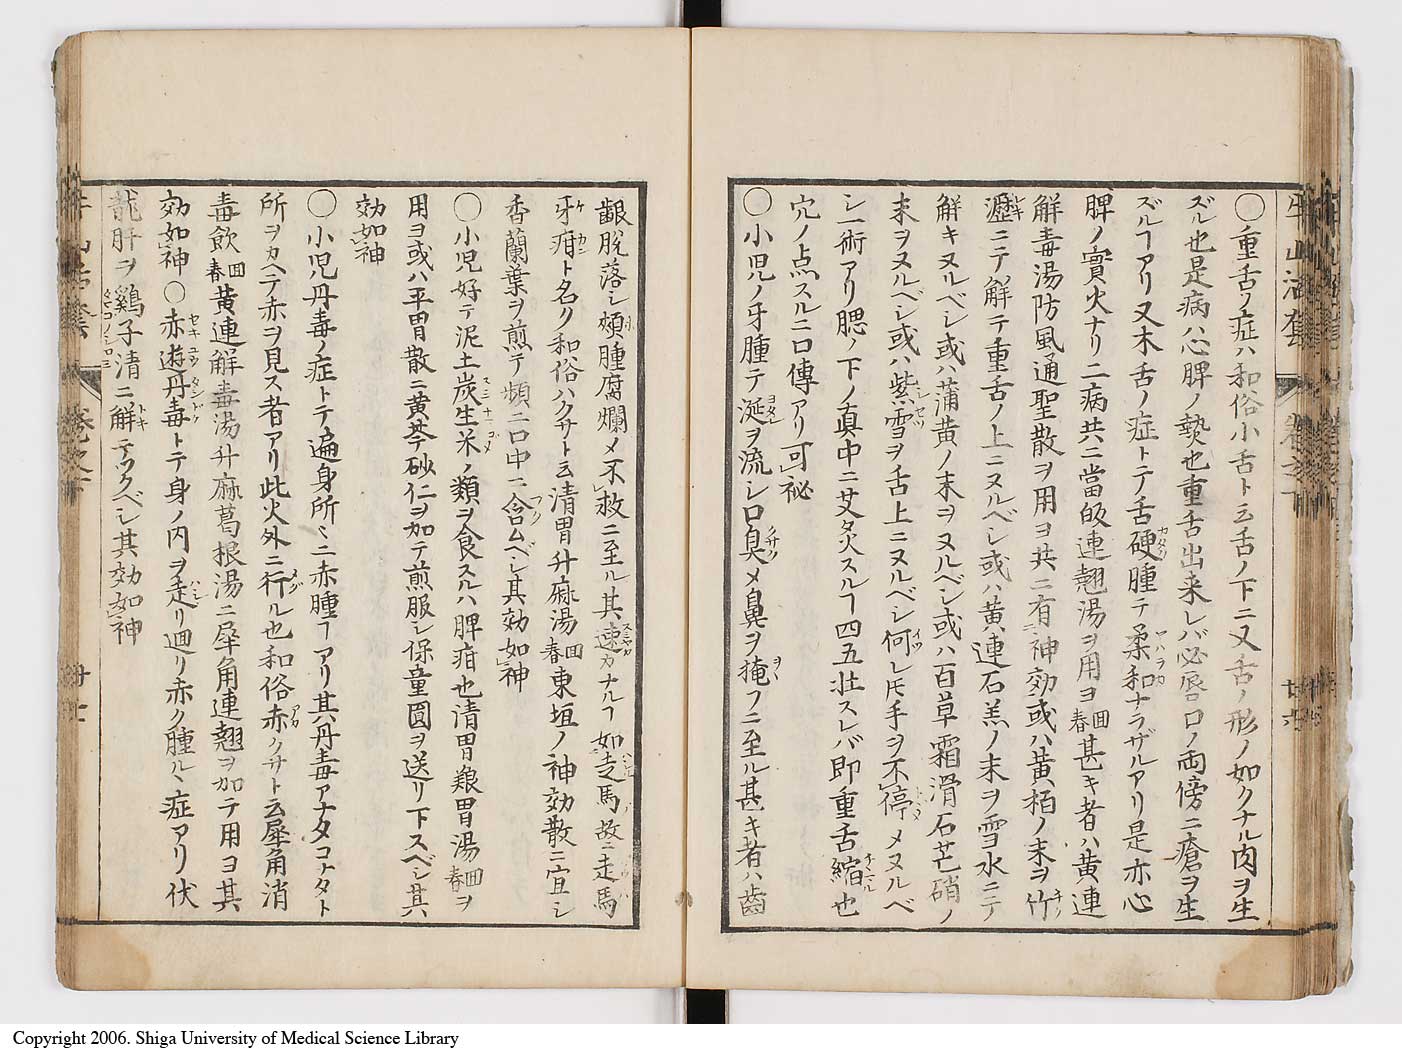 〇重舌ノ症ハ和俗小舌ト云舌ノ下ニ又舌ノ形ノ如クナル肉ヲ生
ズル也是病ハ心脾ノ熱也重舌出来レバ必唇口ノ両傍ニ瘡ヲ生
ズルヿアリ又木舌ノ症トテ舌硬腫テ柔和ナラザルアリ是亦心
脾ノ實火ナリ二病共ニ當皈連翹湯ヲ用ヨ回春甚キ者ハ黄連
解毒湯防風通聖散ヲ用ヨ共ニ有神効或ハ黄栢ノ末ヲ竹
瀝ニテ解テ重舌ノ上ニヌルベシ或ハ黄連石羔ノ末ヲ雪水ニテ
解キヌルベシ或ハ蒲黄ノ末ヲヌルベシ或ハ百草霜滑石芒硝ノ
末ヲヌルベシ或ハ紫雪ヲ舌上ニヌルベシ何レ𪜈手ヲ不停メヌルベ
シ一術アリ腮ノ下ノ真中ニ艾灸スルヿ四五壮スレバ即重舌縮也
穴ノ点スルニ口傳アリ可祕
〇小児ノ牙腫テ涎ヲ流シ口臭メ鼻ヲ掩フニ至ル甚キ者ハ齒
齦脱落シ頰腫腐爛メ不救ニ至ル其速カナルヿ如走馬故ニ走馬
牙疳ト名ク和俗ハクサト云清胃升麻湯回春東垣ノ神効散ニ宜シ
香蘭葉ヲ煎テ頻ニ口中ニ含ムベシ其効如神
〇小児好テ泥土炭生米ノ類ヲ食スルハ脾疳也清胃養胃湯回春ヲ
用ヨ或ハ平胃散ニ黄芩砂仁ヲ加テ煎服シ保童圓ヲ送リ下スベシ其
効如神
〇小児丹毒ノ症トテ遍身所〻ニ赤腫ヿアリ其丹毒アナタコナタト
所ヲカヘテ赤ヲ見ス者アリ此火外ニ行ル也和俗赤クサト云犀角消
毒飲回春黄連解毒湯升麻葛根湯ニ犀角連翹ヲ加テ用ヨ其
効如神〇赤遊丹毒トテ身ノ内ヲ走リ廻リ赤ク腫ルヽ症アリ伏
龍肝ヲ鷄子清ニ解テツクベシ其効如神
牛山活套 卷之下
廿六
Copyright 2006. Shiga University of Medical Science Library